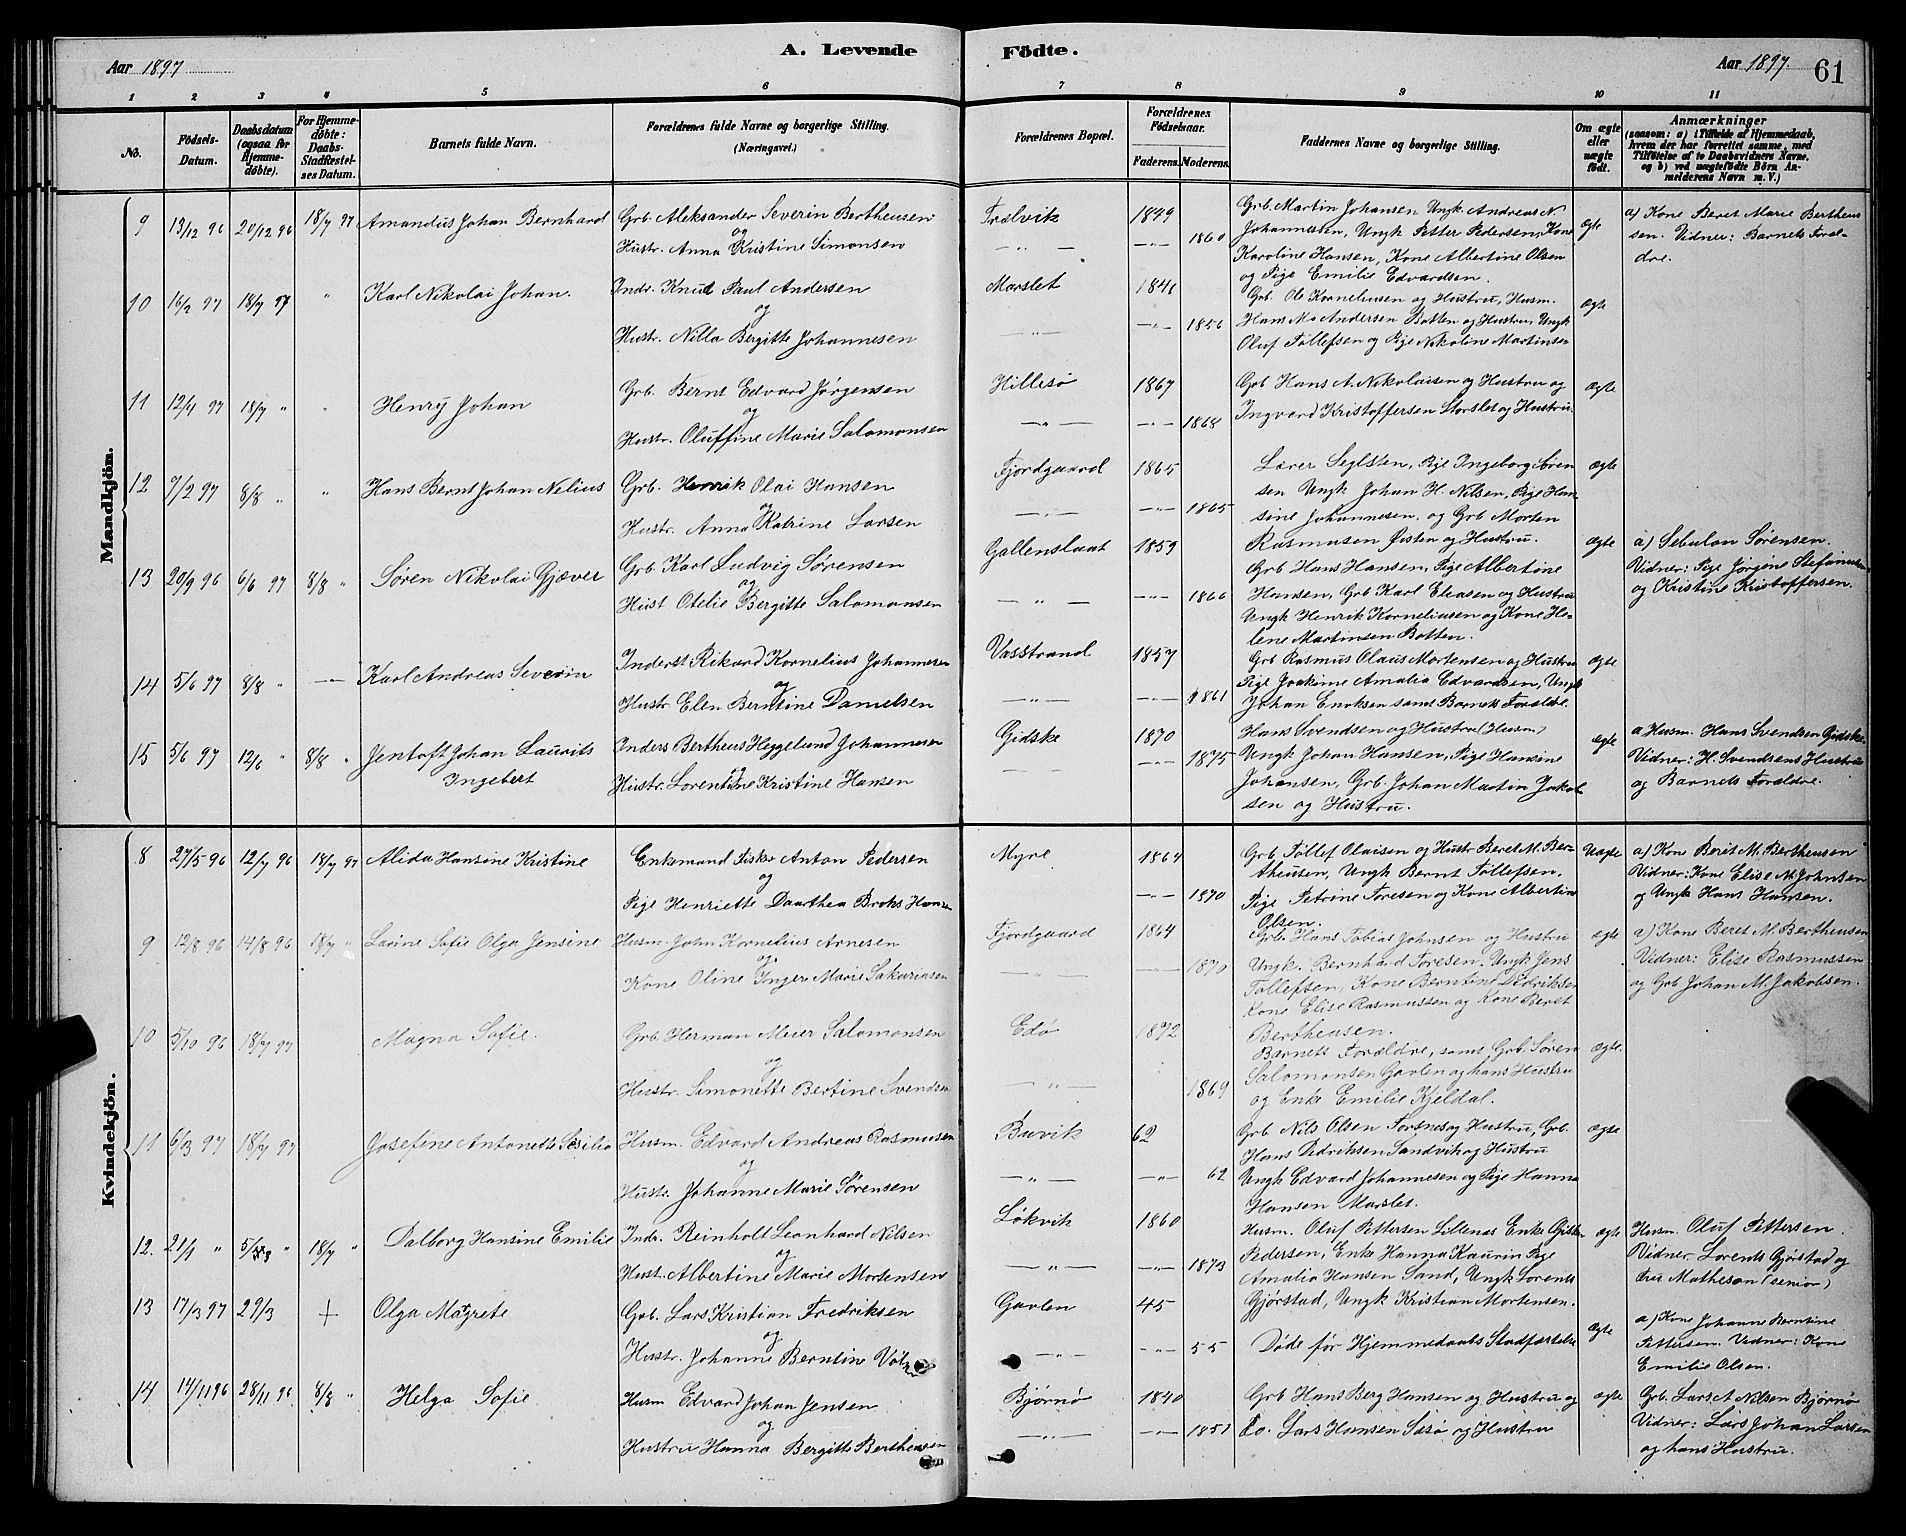 A. Levende Födte.
Aar 1897
Aar 1897. 61
1 2 3 4 5 6 7 8 9 10 11
No.
Födsels-Datum.
Daabsdatum (ogsaa for Hjemmedøbte).
For Hjemmedøbte: Daabs-Stadfæstelses Datum.
Barnets fulde Navn.
Forældrenes fulde Navne og borgerlige Stilling. (Næringsvei.)
Forældrenes Bopæl.
Forældrenes Födselsaar.
Faderens. Moderens.
Faddernes Navne og borgerlige Stilling.
Om ægte eller uægte født.
Anmærkninger
(saasom: a) i Tilfælde af Hjemmedaab, hvem der har forrettet samme, med Tilføielse af to Daabsvidners Navne, og b) ved uægtefödte Börn Anmelderens Navn m. V.)
Mandkjön.
9 13/12 96 20/12 96 18/7 97 Amandus Johan Bernhard
Grb. Aleksander Severin Bertheusen
og
Hustr. Anna Kristine Simonsen
Trælvik 1849
1860
Grb. Martin Johansen Ungk. Andreas N.
Johannesen, Ungk Petter Pedersen, Kone
Karoline Hansen, Kone Albertine Olsen
og Pige Emilie Edvardsen.
ægte
a) Kone Beret Marie Bertheusen. Vidner: Barnets Forældre.
10 16/2 97 18/7 97 " Karl Nikolai Johan.
Indr. Knud Paul Andersen
og
Hustr. Nilla Bergitte Johannesen
Marslet 1846
1856
Grb. Ole Korneliusen og Hustru, Husm.
Hans M. Andersen Botten og Hustru, Ungk
Oluf Tollefsen og Pige Nikoline Martinsen
ægte
11 12/4 97 18/7 " " Henry Johan
Grb. Bernt Edvard Jørgensen
og
Hustr. Oluffine Marie Salomonsen
Hillesø 1867
1868
Grb Hans A. Nikolaisen og Hustru og
Ingvard Kristoffersen Storslet og Hustru.
ægte
12 7/2 97 8/8 " " Hans Bernt Johan Nelius
Grb. Henrik Olai Hansen
og
Hustr. Anna Katrine Larsen
Fjordgaard 1865
1865
Lærer Seglsten, Pige Ingeborg Sørensen Ungk Johan H. Nilsen, Pige Hansine Johannesen, og Grb Morten
Rasmusen Østen og Hustru.
ægte
13 20/9 96 6/6 97 8/8 " Søren Nikolai Gjæver
Grb. Karl Ludvig Sørensen
og
Hust Otelie Bergitte Salomonsen
Gallenslaat 1859
1866
Grb Hans Hansen, Pige Albertine
Hansen, Grb Karl Eliasen og Hustru
Ungk Henrik Korneliusen og Kone Helene Martinsen Botten.
ægte
a) Sebulon Sørensen.
Vidner: Pige Jørgine Stefanussen
og Kristine Kristoffersen.
14 5/6 97 8/8 " Karl Andreas Severin
Inderst Rikard Kornelius Johannesen
og
Hustr. Elen Berntine Danielsen
Vasstrand 1857
1861
Grb Rasmus Olaus Mortensen og Hustru
Pige Joakime Amalia Edvardsen, Ungk
Johan Enoksen samt Barnets Forældre.
ægte
15 5/6 97 12/6 " 8/8 " Jentoft Johan Laurits
Ingebert
Inders Bertheus Heggelund Johannesen
og
Hustr. Lorentine Kristine Hansen
Gidske 1870
1875
Hans Svendsen og Hustru (Husm)
Ungk Johan Hansen, Pige Hansine
Johansen, Grb. Johan Martin Jakobsen og Hustru.
ægte
a Husm. Hans Svendsen Gidske.
Vidner: H. Svendsens Hustru
og Barnets Forældre.
Kvindekjön.
8 27/5 96 12/7 96 18/7 97 Alida Hansine Kristine
Enkemand Fisker Anton Pedersen
og
Pige Henriette Daarthea Broks Hansen
Myre 1864
1870
Grb. Tollef Olaisen og Hustr Beret M. Bertheusen, Ungk Bernt Tollefsen.
Pige Petrine Toresen og Kone Albertine
Olsen.
Uægte
a) Kone Beret M. Bertheusen
Vidner: Kone Elise M. Johnsen
og Ungk Hans Hansen.
9 12/8 96 14/8 96 18/7 " Larine Sofie Olga Jensine
Husm. John Kornelius Arnesen
og
Kone Oline Inger Marie Sakariasen
Fjordgaard 1864
1870
Grb. Hans Tobias Johnsen og Hustru
Ungk. Bernhard Toresen. Ungk Jens
Tollefsen, Kone Berntine Didriksen
Kone Elise Rasmussen og Kone Beret
Bertheusen.
ægte
a) Kone Beret M. Bertheusen
Vidner: Elise Rasmussen
og Grb Johan M. Jakobsen.
10 5/10 96 18/7 97 Magna Sofie.
Grb. Herman Meier Salomonsen
og
Hustr. Simonette Bertine Svendsen
Edø 1872
1869
Barnets Forældre, samt Grb. Søren
Salomonsen Gavlen og hans Hustru
og Enke Emilie Kjeldal.
ægte.
11 6/3 97 18/7 97 Josefine Antonette Sesilie
Husm. Edvard Andreas Rasmusen
og
Hustr. Johanne Marie Sørensen
Buvik 62
62
Grb. Nils Olsen Torsnes og Hustru, Grb.
Hans Didriksen Sandvik og Hustru
Ungk Edvard Johannesen og Pige Hanna
Hansen Marslet.
ægte
12. 21/1 " 5/3 " 18/7 " Dalborg Hansine Emilie
Indr. Reinholt Leonhard Nilsen
og
Hust. Albertine Marie Mortensen
Løkvik 1860
1873
Husm. Oluf Pettersen Lillenes Enke Gjertine
Pedersen, Enke Hanna Kaurin Pige
Amalia Hansen Sand, Ungk Lorents
Gjørstad, Ungk Kristian Mortensen.
ægte
Husm. Oluf Pettersen.
Vidner. Lorents Gjørstad og
Fru Matheson (senior)
13 17/3 97 29/3 + Olga Magrete
Grb. Lars Kristian Fredriksen
og
Hustr. Johanne Berntine
Gavlen 45
55
Døde før Hjemmedaabs Stadfæstelse
ægte
a) Kone Johanne Berntine
Pettersen. Vidner: Kone
Emilie Olsen.
14 14/11 96 28/11 96 8/8 " Helga Sofie
Husm Edvard Johan Jensen
og
Hustru Hanna Bergitte Bertheusen
Bjørnø 1840
1851
Grb Hans Berg Hansen og Hustru og
Do. Lars Hansen Sesø og Hustru
ægte
Grb. Lars A. Nilsen Bjørnø
Vidner: Lars Johan Larsen
og hans Hustru.